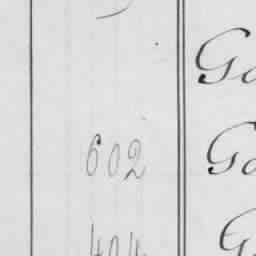 Ga
602 Ga
404 G